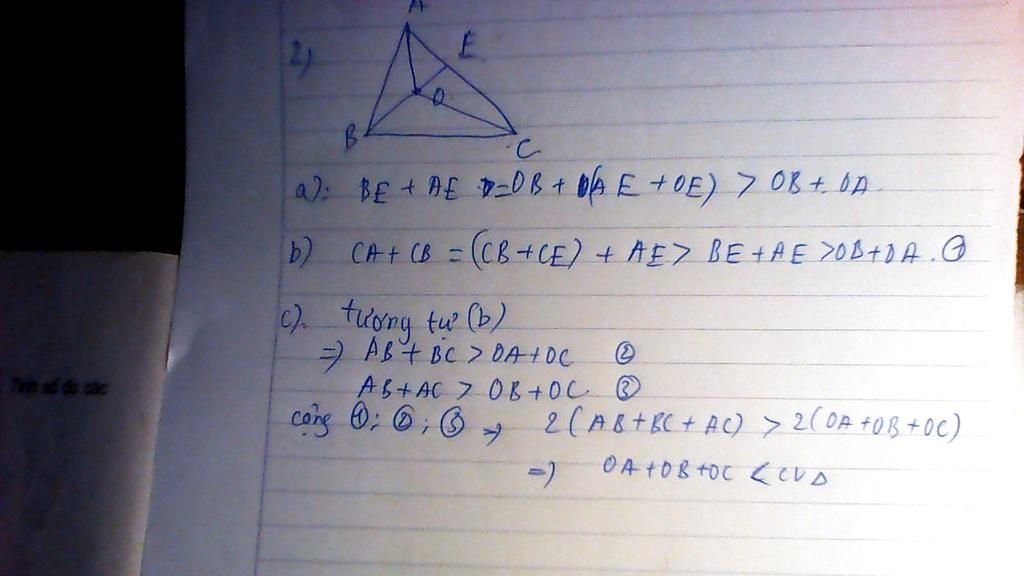 A
2)
E
O
B
C
a): BE + AE = OB + (AE + OE) > OB + OA
b) CA + CB = (CB + CE) + AE > BE + AE > OB + OA. ①
c). tương tự (b)
=) AB + BC > OA + OC ②
AB + AC > OB + OC. ③
cộng ①; ②; ③ => 2(AB + BC + AC) > 2(OA + OB + OC)
=) OA + OB + OC < CV△
Tính số đo các